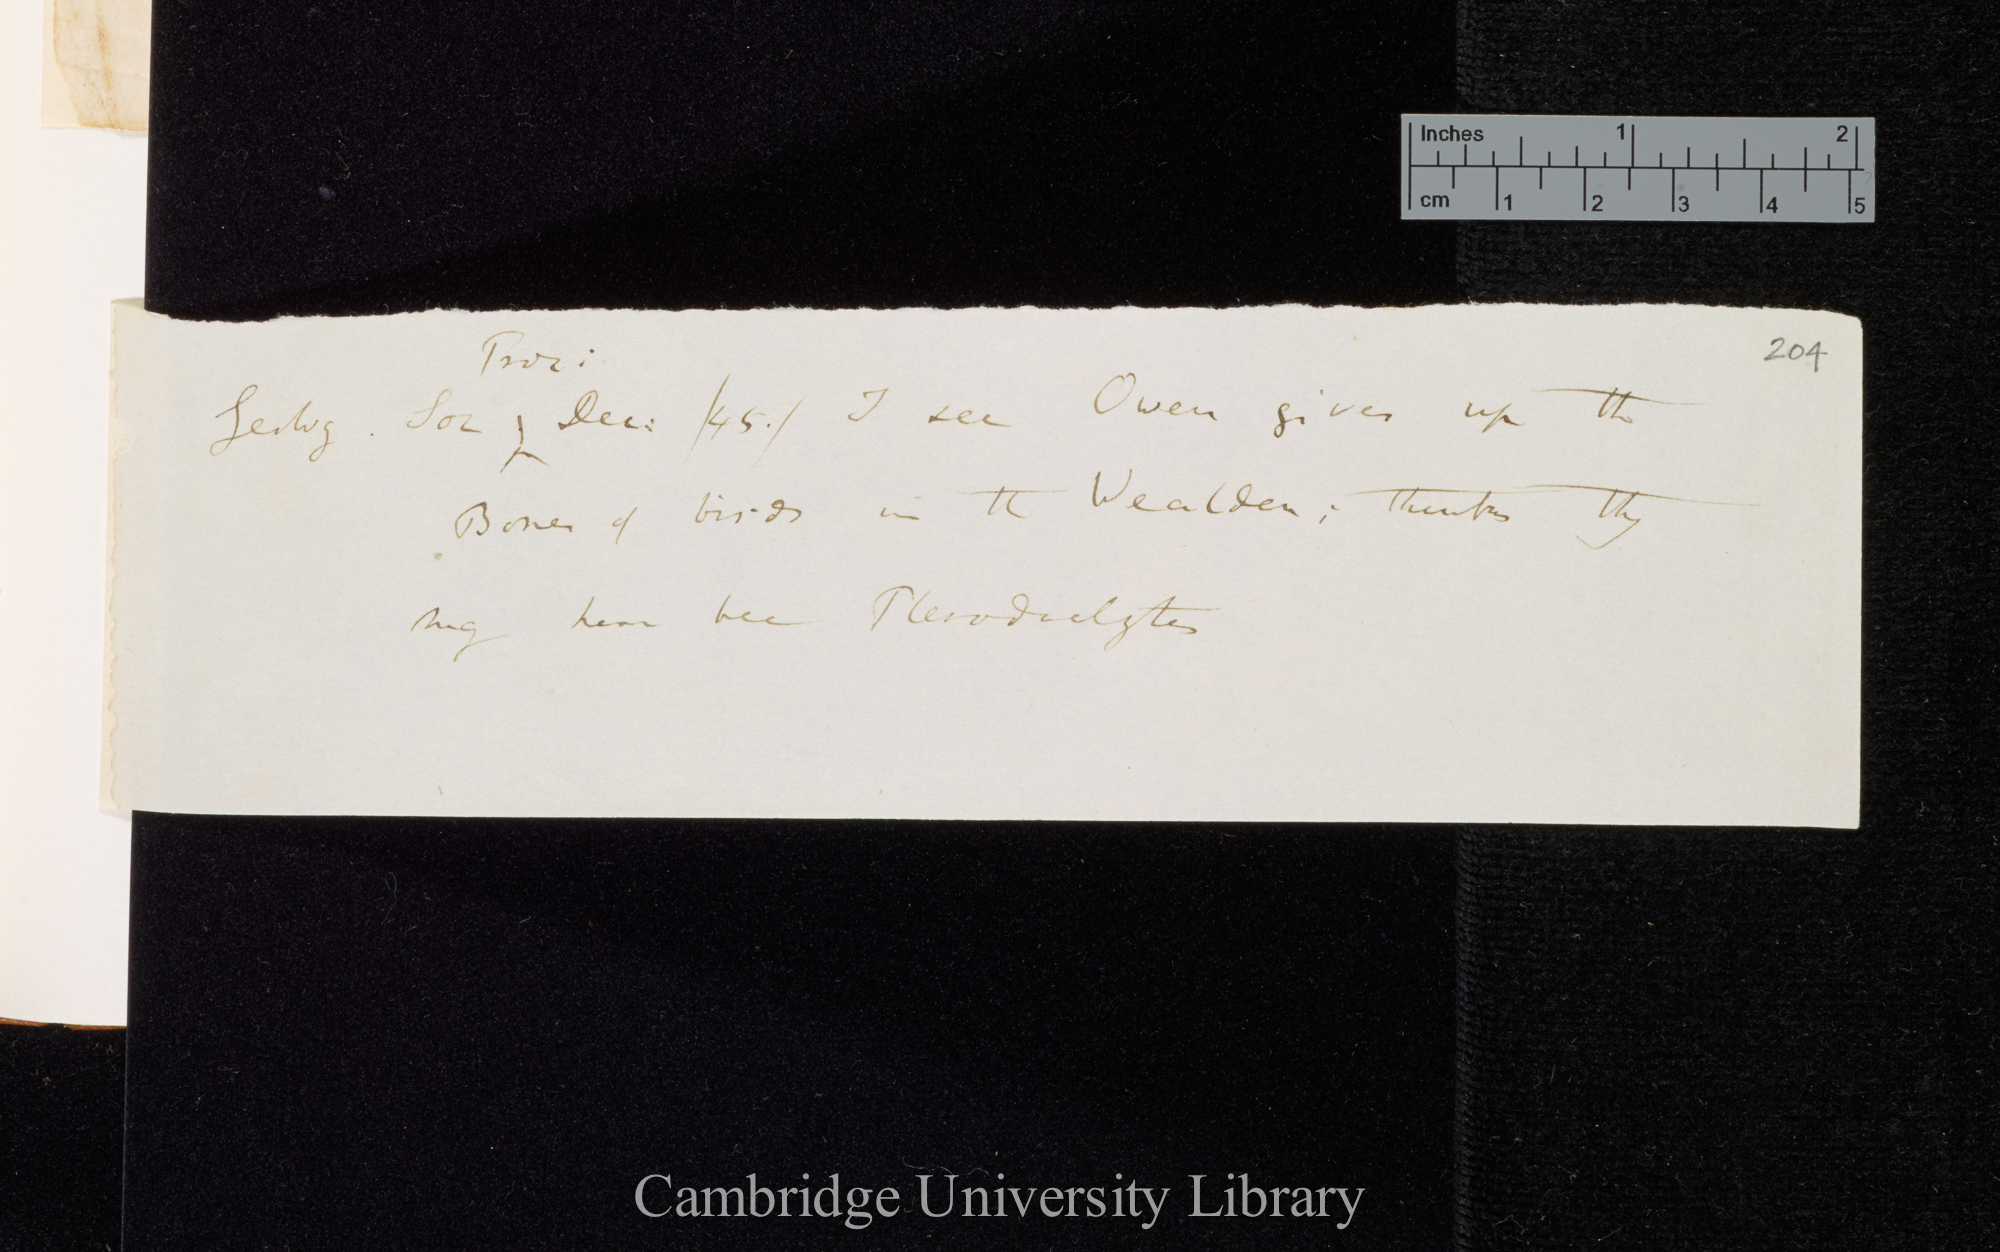 Inches 1 2
cm 1 2 3 4 5
204
Proc:
Geolog. Soc Dec: /45./ I see Owen gives up the
Bones of birds in the Wealden; thinks they
may have been Pterodactyles
Cambridge University Library